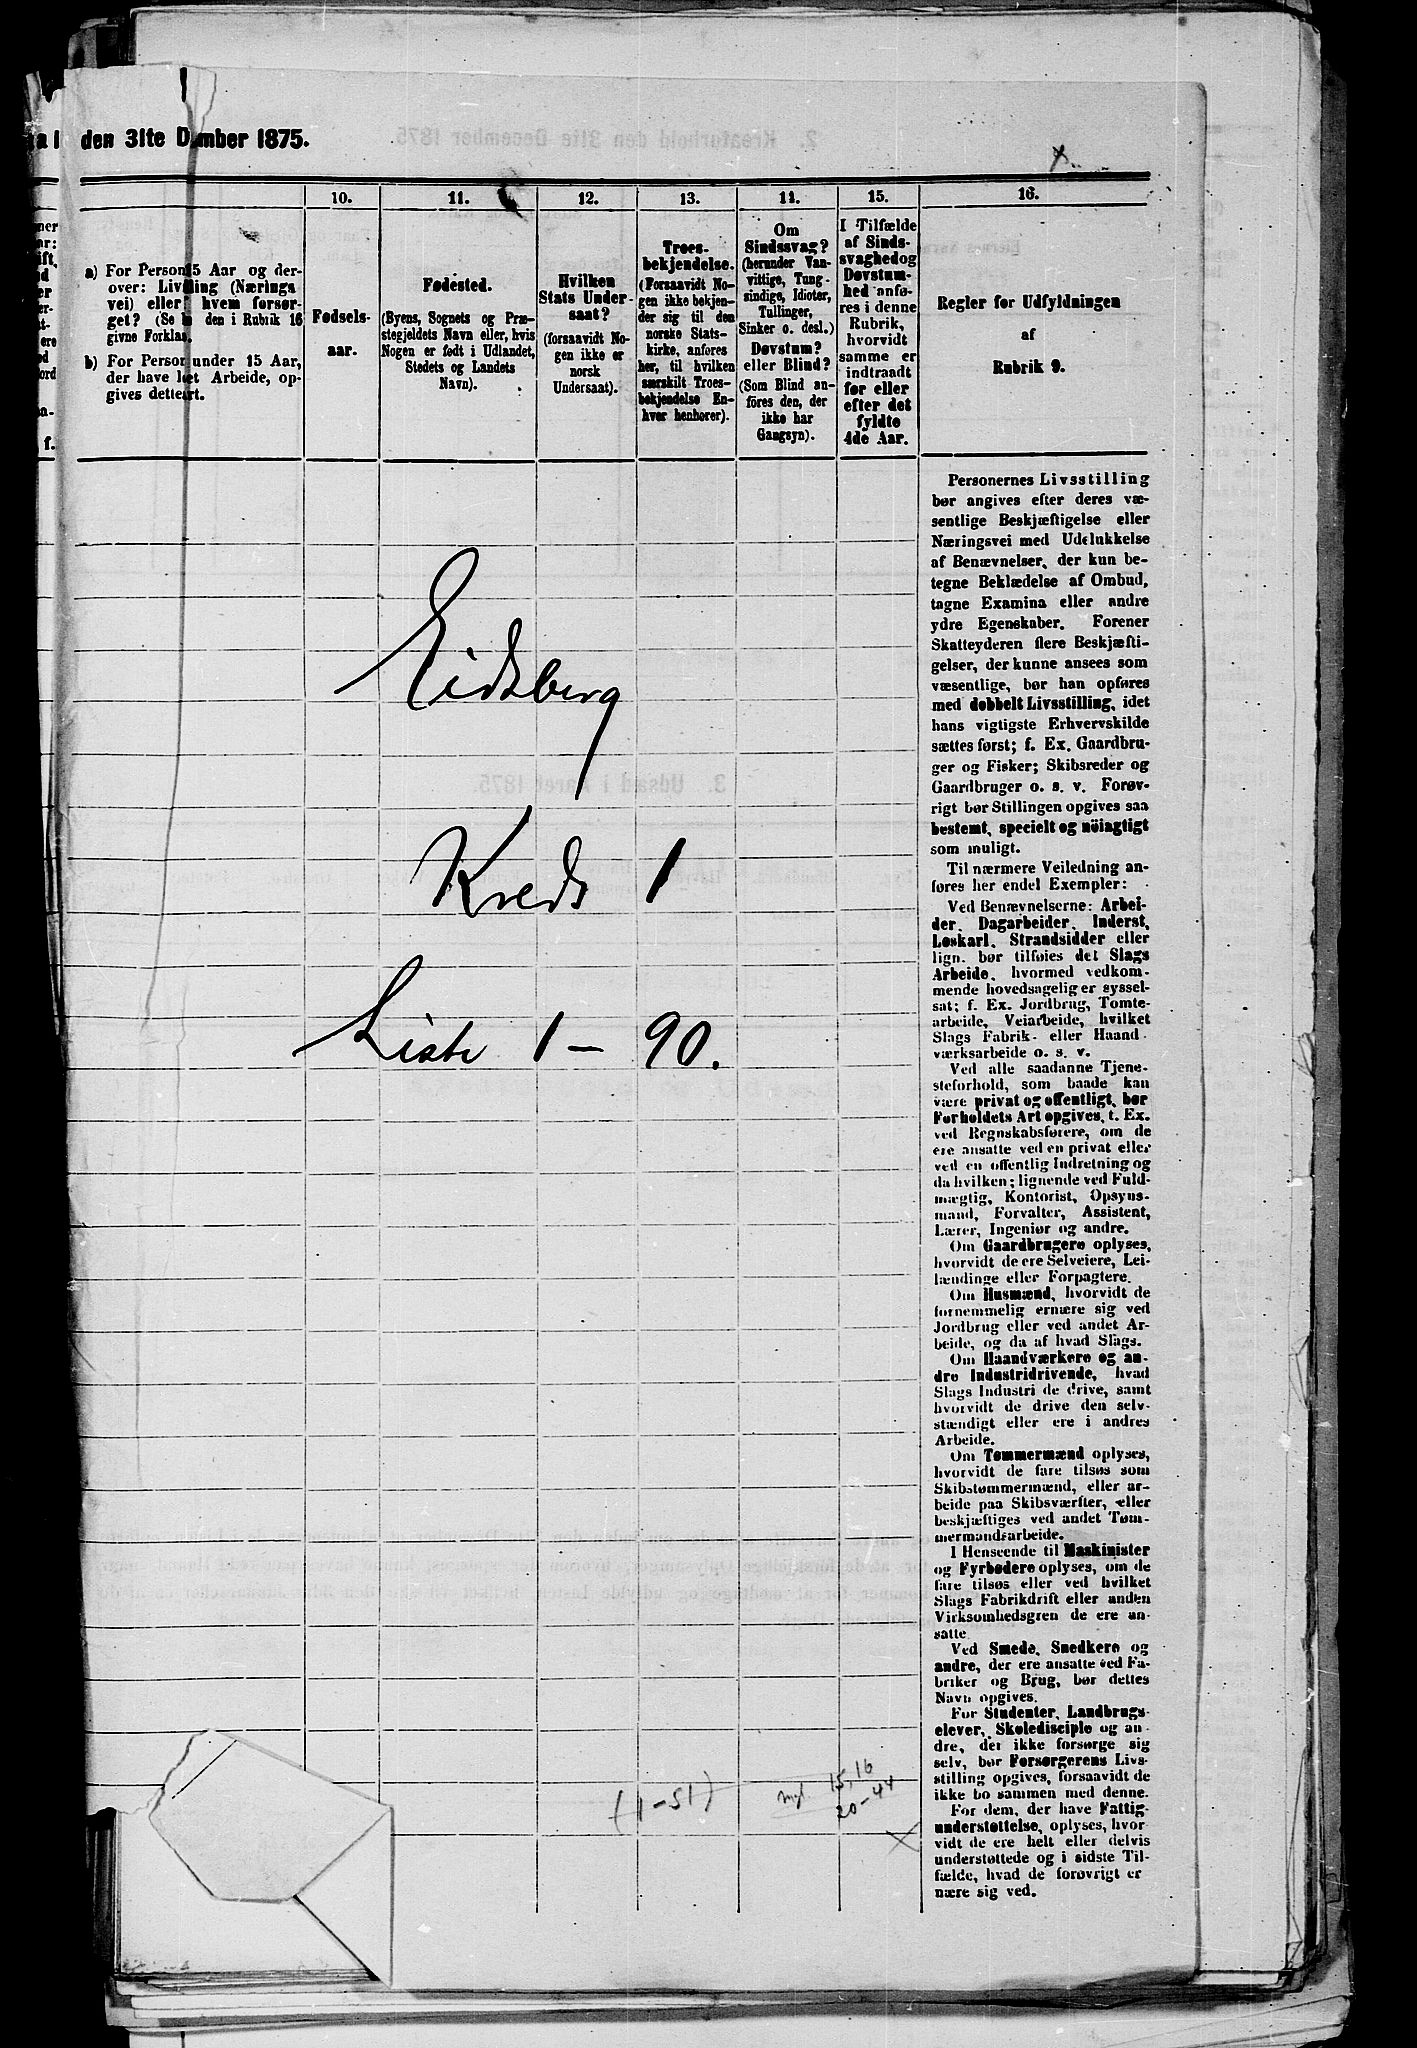 den 31te D mber 1875.
10. 11. 12. 13. 14. 15. 16.
a) For Person 5 Aar og der-
over: Livs ling (Nærings
vei) eller hvem forsør-
get? (Se den i Rubrik 16
givne Forklar.
b) For Person under 15 Aar,
der have let Arbeide, op-
gives dette art.
Fødsels-
aar.
Fødested.
(Byens, Sognets og Præ-
stegjeldets Navn eller, hvis
Nogen er født i Udlandet,
Stedets og Landets
Navn).
Hvilken
Stats Under-
saat?
(forsaavidt No-
gen ikke er
norsk
Undersaat).
Troes-
bekjendelse.
(Forsaavidt No-
gen ikke bekjen-
der sig til den
norske Stats-
kirke, anføres
her, til hvilken
særskilt Troes-
bekjendelse En-
hver henhører).
Om
Sindssvag?
(herunder Van-
vittige, Tung-
sindige, Idioter,
Tullinger,
Sinker o. desl.)
Døvstum?
eller Blind?
(Som Blind an-
føres den, der
ikke har
Gangsyn).
I Tilfælde
af Sinds-
svaghed og
Døvstum-
hed anfø-
res i denne
Rubrik,
hvorvidt
samme er
indtraadt
før eller
efter det
fyldte
4de Aar.
Regler for Udfyldningen
af
Rubrik 9.
Personernes Livsstilling
bør angives efter deres væ-
sentlige Beskjæftigelse eller
Næringsvei med Udelukkelse
af Benævnelser, der kun be-
tegne Beklædelse af Ombud,
tagne Examina eller andre
ydre Egenskaber. Forener
Skatteyderen flere Beskjæfti-
gelser, der kunne ansees som
væsentlige, bør han opføres
med dobbelt Livsstilling, idet
hans vigtigste Erhvervskilde
sættes først; f. Ex. Gaardbru-
ger og Fisker; Skibsreder og
Gaardbruger o. s. v. Forøv-
rigt bør Stillingen opgives saa
bestemt, specielt og nöiagtigt
som muligt.
Til nærmere Veiledning an-
føres her endel Exempler:
Ved Benævnelserne: Arbei-
der, Dagarbeider, Inderst,
Løskarl, Strandsidder eller
lign. bør tilføies det Slags
Arbeide, hvormed vedkom-
mende hovedsagelig er syssel-
sat; f. Ex. Jordbrug, Tomte-
arbeide, Veiarbeide, hvilket
Slags Fabrik- eller Haand-
værksarbeide o. s. v.
Ved alle saadanne Tjene-
steforhold, som baade kan
være privat og offentligt, bør
Forholdets Art opgives, t. Ex.
ved Regnskabsførere, om de
ere ansatte ved en privat eller
ved en offentlig Indretning og
da hvilken; lignende ved Fuld-
mægtig, Kontorist, Opsyns-
mand, Forvalter, Assistent,
Lærer, Ingeniør og andre.
Om Gaardbrugere oplyses,
hvorvidt de ere Selveiere, Lei-
lændinge eller Forpagtere.
Om Husmænd, hvorvidt de
fornemmelig ernære sig ved
Jordbrug eller ved andet Ar-
beide, og da af hvad Slags.
Om Haandværkere og an-
dre Industridrivende, hvad
Slags Industri de drive, samt
hvorvidt de drive den selv-
stændigt eller ere i andres
Arbeide.
Om Tømmermænd oplyses,
hvorvidt de fare tilsøs som
Skibstømmermænd, eller ar-
beide paa Skibsværfter, eller
beskjæftiges ved andet Tøm-
mermandsarbeide.
I Henseende til Maskinister
og Fyrbødere oplyses, om de
fare tilsøs eller ved hvilket
Slags Fabrikdrift eller anden
Virksomhedsgren de ere an-
satte
Ved Smede, Snedkere og
andre, der ere ansatte ved Fa-
briker og Brug, bør dettes
Navn opgives.
For Studenter, Landbrugs-
elever, Skoledisciple og an-
dre, der ikke forsørge sig
selv, bør Forsørgerens Livs-
stilling opgives, forsaavidt de
ikke bo sammen med denne.
For dem, der have Fattig-
understøttelse, oplyses, hvor-
vidt de ere helt eller delvis
understøttede og i sidste Til-
fælde, hvad de forøvrigt er
nære sig ved.
Eidsberg
Kreds 1
Liste 1 - 90.
(1-51)
mgl. 15, 16
20-44